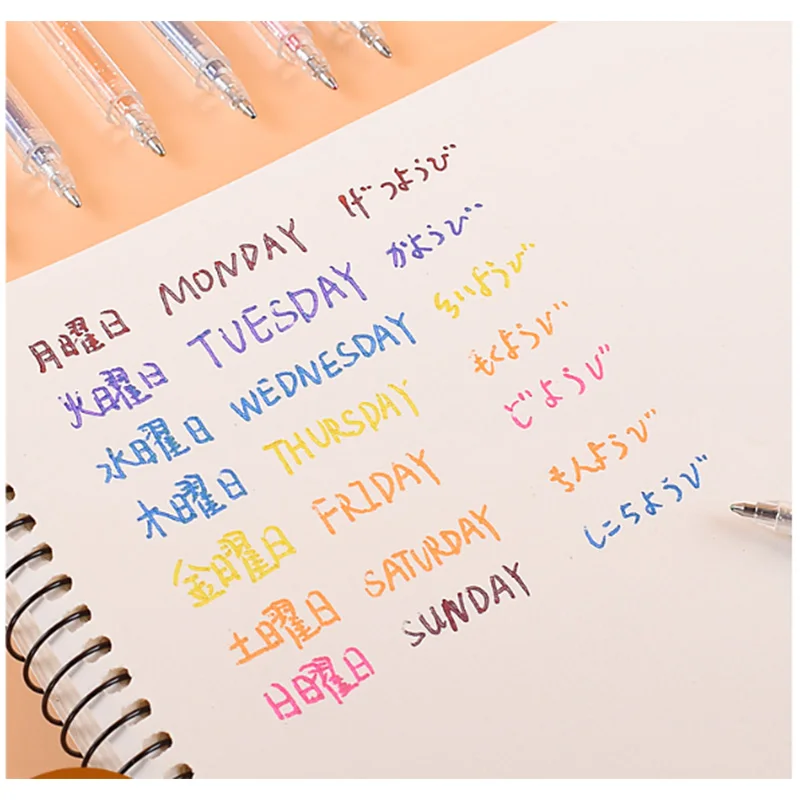 月曜日 MONDAY げつようび
火曜日 TUESDAY かようび
水曜日 WEDNESDAY
木曜日 THURSDAY もくようび
金曜日 FRIDAY どようび
土曜日 SATURDAY
日曜日 SUNDAY しこらようび